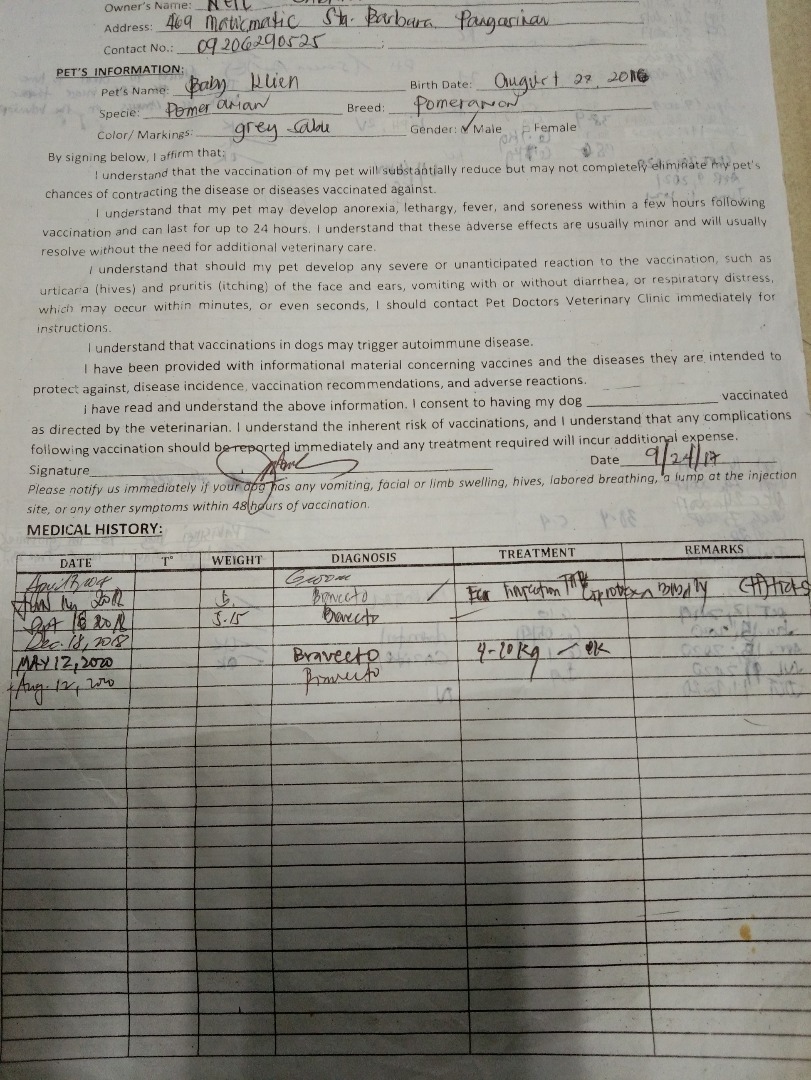 Owner's Name: Neil
Address: 469 Maticmatic Sta. Barbara Pangasinan
Contact No.: 09206290525
PET'S INFORMATION:
Pet's Name: Baby Klien Birth Date: August 27, 2016
Specie: Pomeranian Breed: Pomeranian
Color/ Markings: grey sable Gender: ✓ Male Female
By signing below, I affirm that:
I understand that the vaccination of my pet will substantially reduce but may not completely eliminate my pet's
chances of contracting the disease or diseases vaccinated against.
I understand that my pet may develop anorexia, lethargy, fever, and soreness within a few hours following
vaccination and can last for up to 24 hours. I understand that these adverse effects are usually minor and will usually
resolve without the need for additional veterinary care.
I understand that should my pet develop any severe or unanticipated reaction to the vaccination, such as
urticaria (hives) and pruritis (itching) of the face and ears, vomiting with or without diarrhea, or respiratory distress,
which may occur within minutes, or even seconds, I should contact Pet Doctors Veterinary Clinic immediately for
instructions.
I understand that vaccinations in dogs may trigger autoimmune disease.
I have been provided with informational material concerning vaccines and the diseases they are intended to
protect against, disease incidence, vaccination recommendations, and adverse reactions.
I have read and understand the above information. I consent to having my dog ____________ vaccinated
as directed by the veterinarian. I understand the inherent risk of vaccinations, and I understand that any complications
following vaccination should be reported immediately and any treatment required will incur additional expense.
Signature Date 9/24/17
Please notify us immediately if your dog has any vomiting, facial or limb swelling, hives, labored breathing, a lump at the injection
site, or any other symptoms within 48 hours of vaccination.
MEDICAL HISTORY:
DATE T° WEIGHT DIAGNOSIS TREATMENT REMARKS
Groom
5. Bravecto For (+) Ticks
Sept 18 2018 5.15 Bravecto
Dec. 18, 2018
MAY 12, 2020 Bravecto 4-10kg ok
Aug. 12, 2020 Bravecto